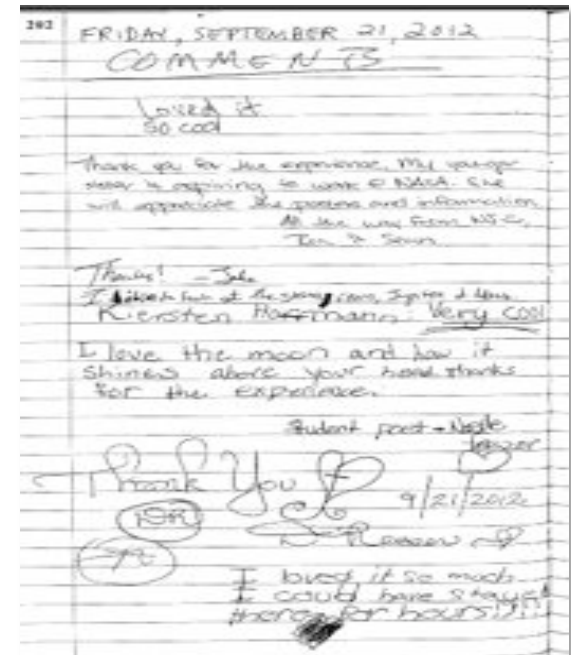 202
FRIDAY, SEPTEMBER 21, 2012
COMMENTS
Loved it
so cool
Thank you for the experience. My younger
sister is aspiring to work @ NASA. She
will appreciate the posters and information.
All the way from
& Sean
Thanks! - Jake
I look at the
Kiersten Hoffmann: Very cool
I love the moon and how it
shines above your head thanks
for the experience.
Student poet - 
Thank You
9/21/2012
DR
I loved it so much
I could have stayed
there for hours!!!!